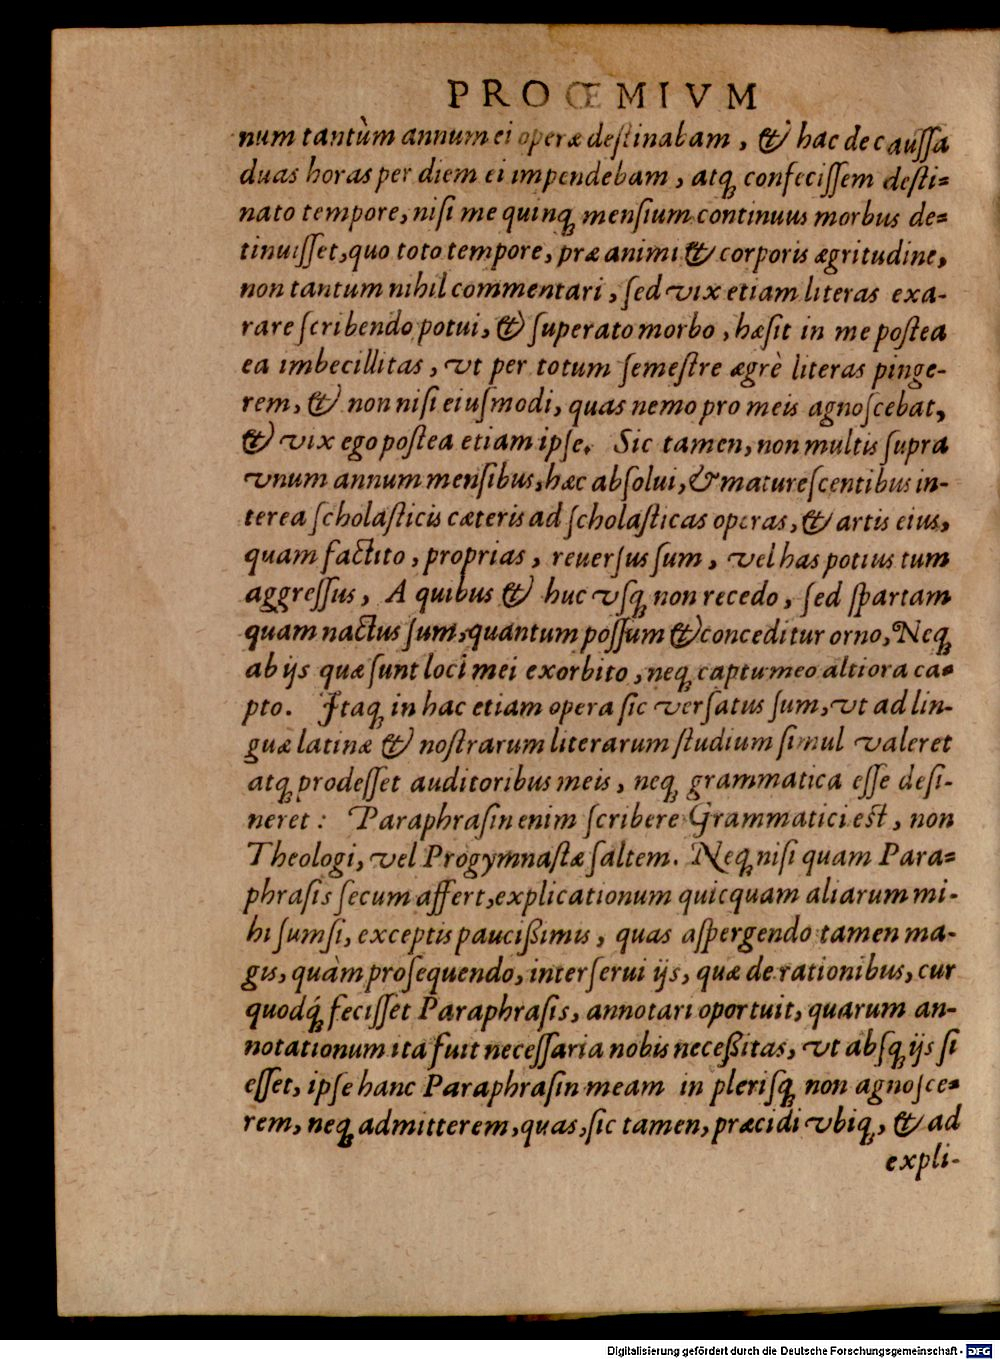 PROŒMIVM
num tantùm annum ei operæ deſtinabam, & hac de cauſſa
duas horas per diem ei impendebam, atq; confeciſſem deſti=
nato tempore, niſi me quinq; menſium continuus morbus de=
tinuiſſet, quo toto tempore, præ animi & corporis ægritudine,
non tantum nihil commentari, ſed vix etiam literas exa-
rare ſcribendo potui, & ſuperato morbo, hæſit in me poſtea
ea imbecillitas, vt per totum ſemeſtre ægrè literas pinge-
rem, & non niſi eiuſmodi, quas nemo pro meis agnoſcebat,
& vix ego poſtea etiam ipſe. Sic tamen, non multis ſupra
vnum annum menſibus, hæc abſolui, & matureſcentibus in-
terea ſcholaſticis cæteris ad ſcholaſticas operas, & artis eius,
quam factito, proprias, reuerſus ſum, vel has potius tum
aggreſſus, A quibus & huc vſq; non recedo, ſed ſpartam
quam nactus ſum, quantum poſſum & conceditur orno, Neq;
ab ijs quæ ſunt loci mei exorbito, neq; captu meo altiora ca=
pto. Itaq; in hac etiam opera ſic verſatus ſum, vt ad lin-
guæ latinæ & noſtrarum literarum ſtudium ſimul valeret
atq; prodeſſet auditoribus meis, neq; grammatica eſſe deſi-
neret: Paraphraſin enim ſcribere Grammatici eſt, non
Theologi, vel Progymnaſtæ ſaltem. Neq; niſi quam Para=
phraſis ſecum affert, explicationum quicquam aliarum mi-
hi ſumſi, exceptis pauciſsimis, quas aſpergendo tamen ma-
gis, quàm proſequendo, interſerui ijs, quæ de rationibus, cur
quodq́; feciſſet Paraphraſis, annotari oportuit, quarum an-
notationum ita fuit neceſſaria nobis neceſsitas, vt abſq; ijs ſi
eſſet, ipſe hanc Paraphraſin meam in pleriſq; non agnoſce=
rem, neq; admitterem, quas, ſic tamen, præcidi vbiq;, & ad
expli-
Digitalisierung gefördert durch die Deutsche Forschungsgemeinschaft - DFG